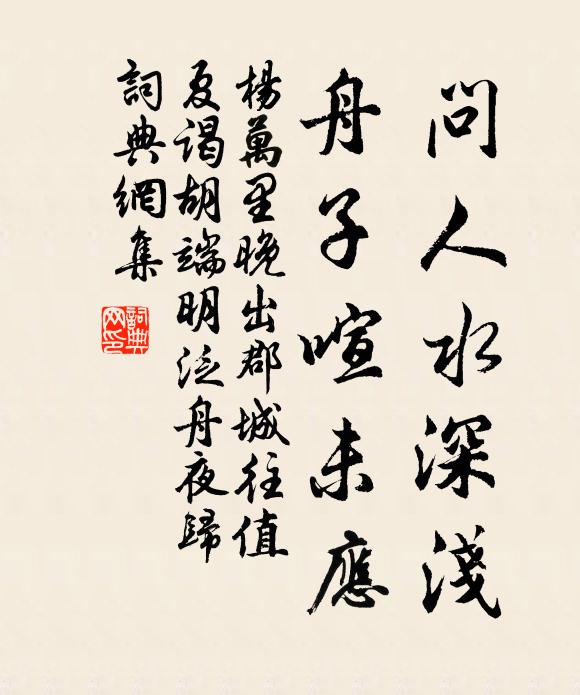 問人水深淺
舟子喧未應
楊萬里晚出郡城往值
夏謁胡端明泛舟夜歸
詞典網集
詞典网印